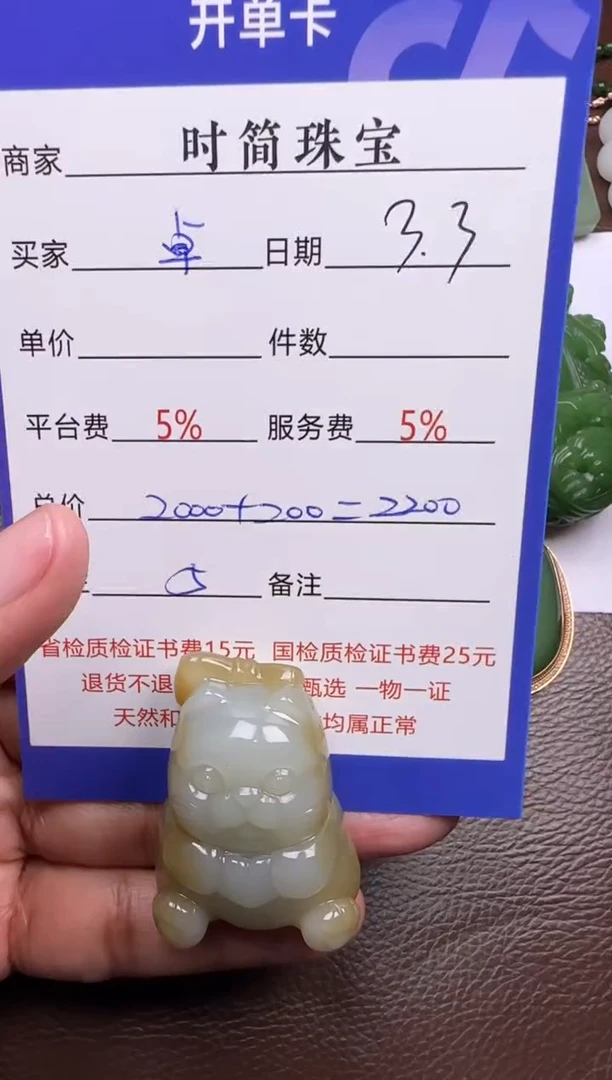 开单卡
商家 时简珠宝
买家 卓 日期 3.3
单价 件数
平台费 5% 服务费 5%
总价 2000+200=2200
备注
省检质检证书费15元 国检质检证书费25元
退货不退 甄选 一物一证
天然和 均属正常